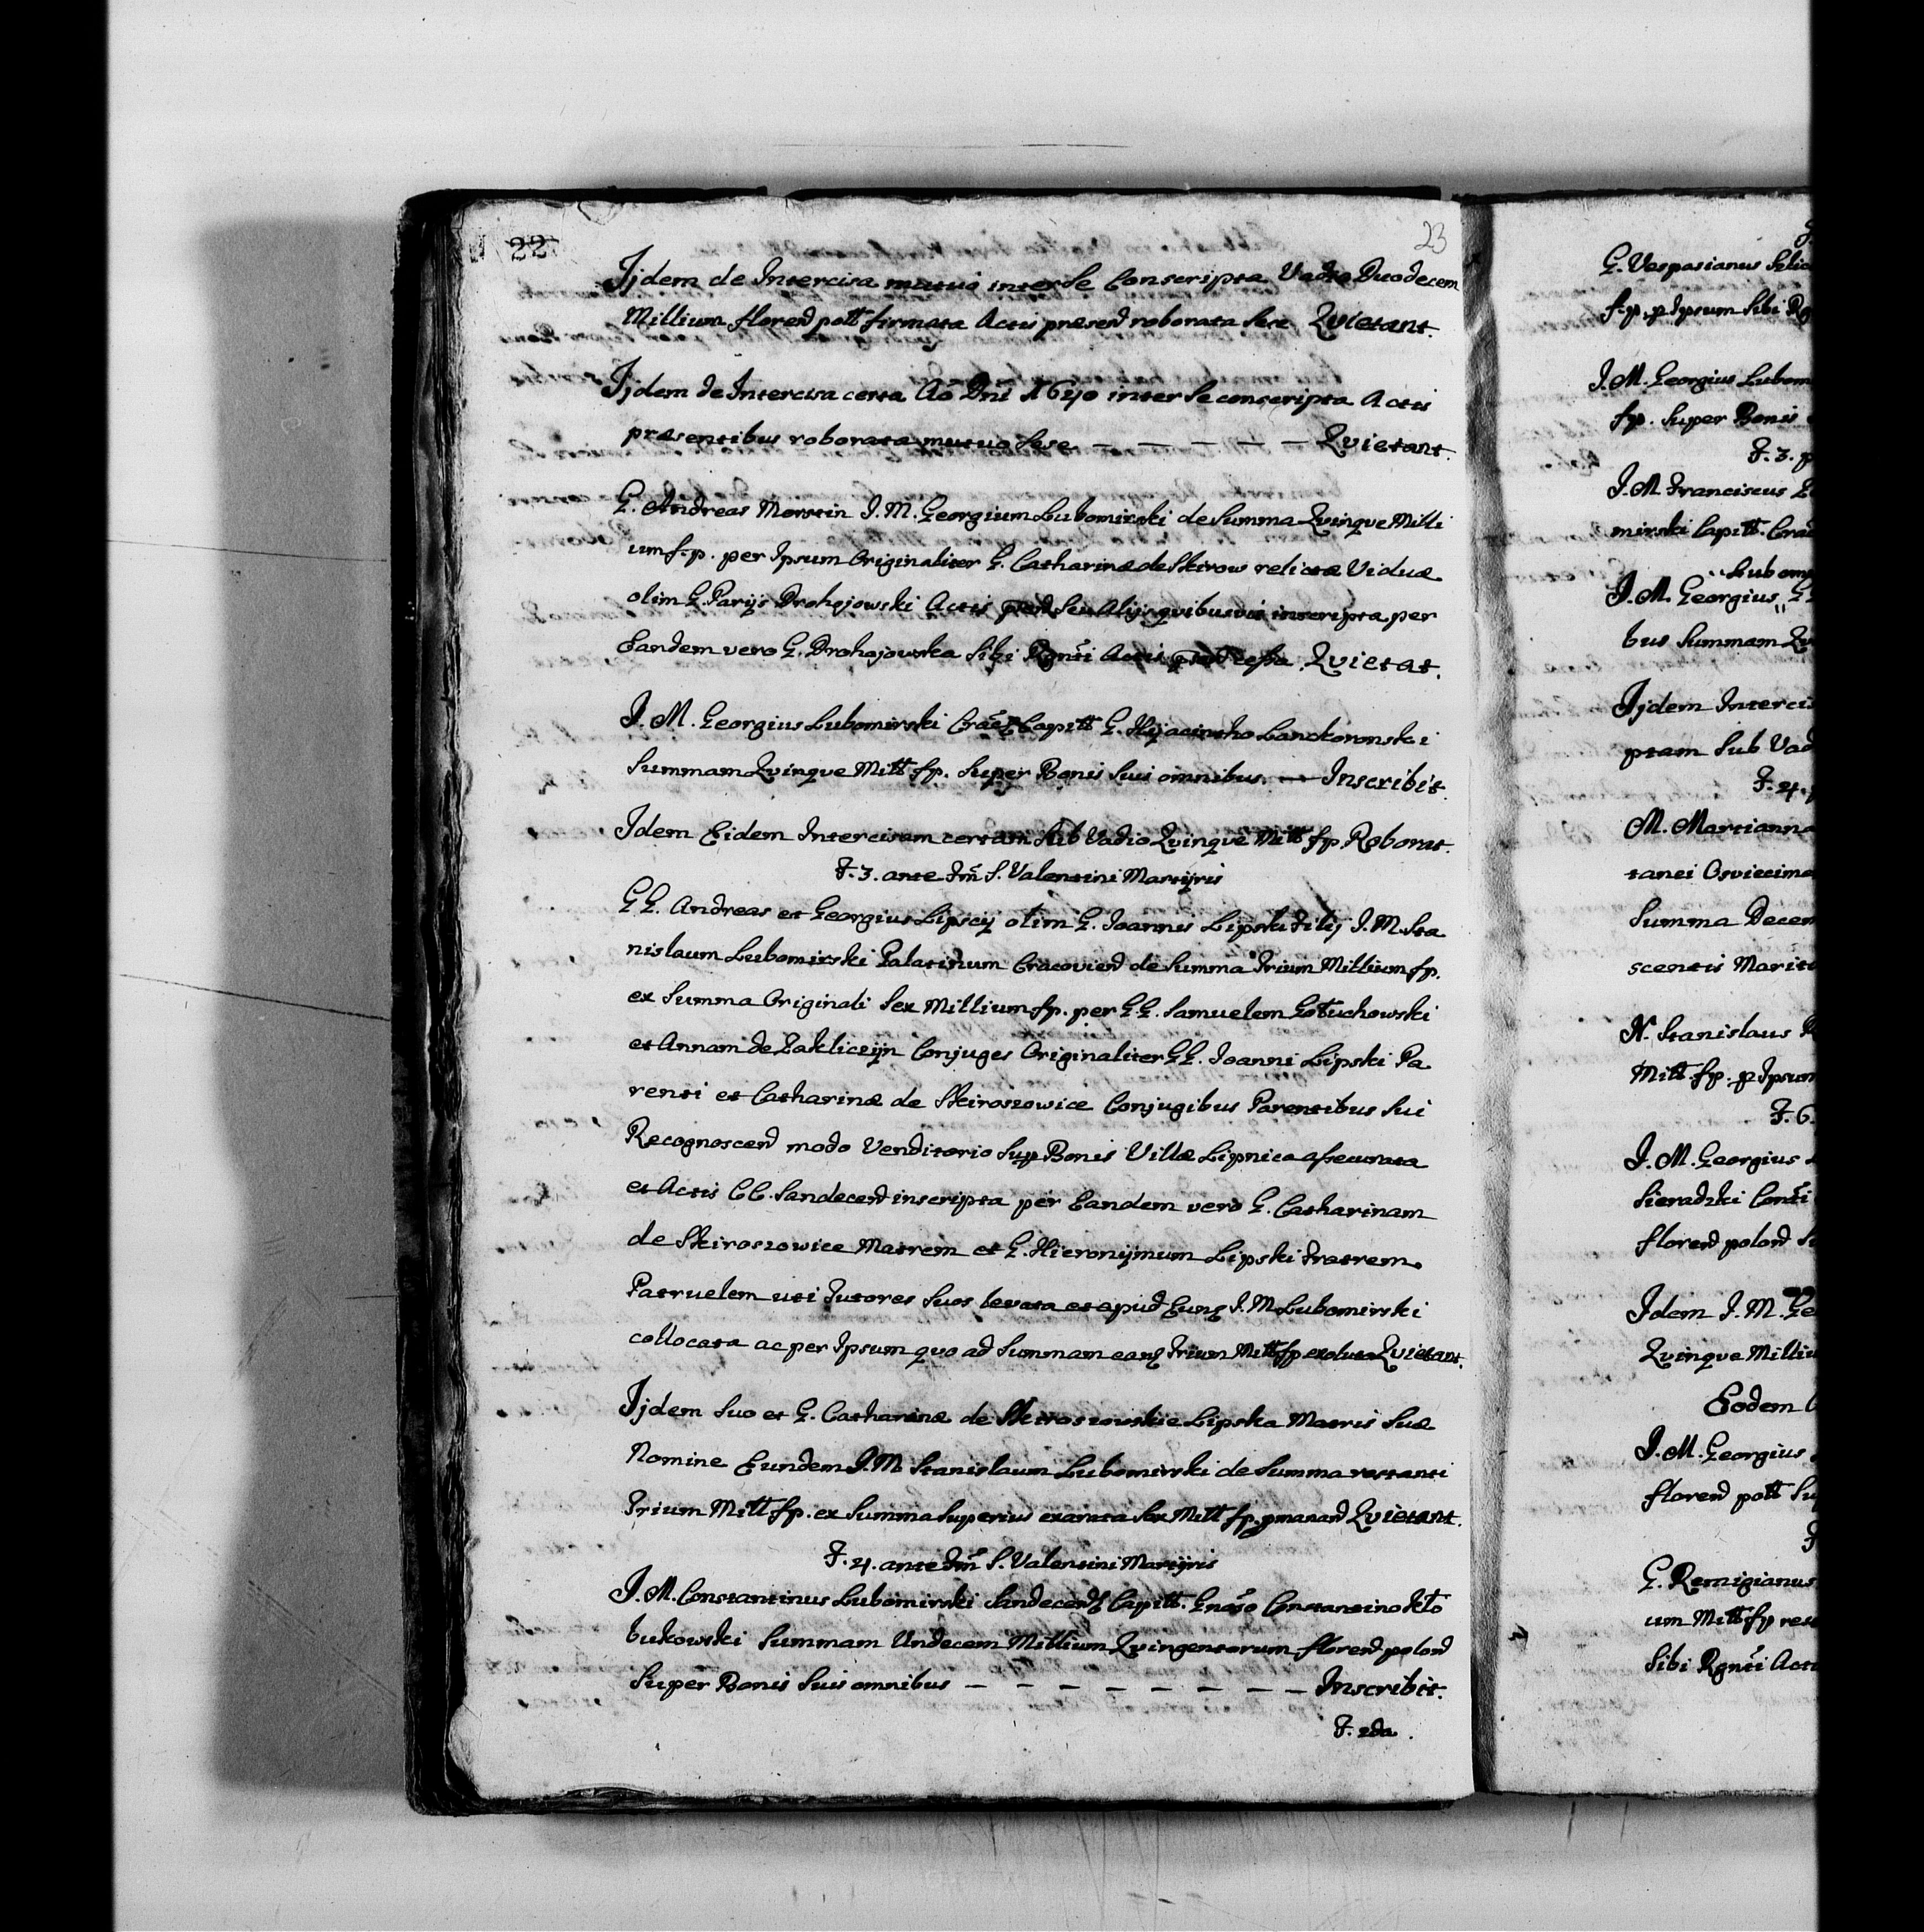 22
23
Ijdem de Intercisa mutuo inter Se Conscripta Vadio Duodecem
Millium floren̄ poll̄ firmata Actis præsen̄ roborata Sese Qvietant.
Ijdem de Intercisa certa Aō Dn̄i 1640 inter Se conscripta Actis
præsentibus roborata mutuo Sese — — — — — Qvietant.
G. Andreas Morstin I. M. Georgium Lubomirski de Summa Qvinqve Milli
um f. p. per Ipsum Originaliter G. Catharinæ de Skirow relictæ Viduæ
olim G. Parijs Drohojowski Actis præn̄ Seu Alijs qvibusvis inscripta per
Eandem vero G. Drohojowska Sibi Rgnc̄i Actis cessa Qvietat.
I. M. Georgius Lubomirski Capitt G. Hijacintho Lanckoronski
Summam Qvinqve Mill̄ fp. Super Bonis Suis omnibus. — Inscribit.
Idem Eidem Intercisam certam Sub Vadio Qvinqve Mill̄ fp. Roborat.
F. 3. ante Fm̄ S. Valentini Martijris
GG. Andreas et Georgius Lipscij olim G. Joannis Lipski Filij I. M. Sta
nislaum Lubomirski Palatinum Cracovien̄ de Summa Trium Millium fp.
ex Summa Originali Sex Millium fp. per GG. Samuelem Gołuchowski
et Annam de Zakliczijn Conjuges Originaliter GG. Joanni Lipski Pa
renti et Catharinæ de Skiroszowice Conjugibus Parentibus Sui
Recognoscen̄ modo Venditorio Sup Bonis Villæ Lipnica assecurata
et Actis CC. Sandecen̄ inscripta per Eandem vero G. Catharinam
de Skiroszowice Matrem et G. Hieronijmum Lipski Fratrem
Patruelem uti Tutores Suos levata et apud Eunq I. M. Lubomirski
collocata ac per Ipsum quo ad Summam eanq Trium Mill̄ fp exoluta Qvietant.
Ijdem Suo et G. Catharinæ de Skiroszowskie Lipska Matris Suæ
Nomine Eundem I. M. Stanislaum Lubomirski de Summa restanti
Trium Mill̄ fp. ex Summa Superius exarata Sex Mill̄ fp. pmanan̄ Qvietant.
F. 4. ante Fm̄ S. Valentini Martijris
I. M. Constantinus Lubomirski Sandecen̄ Capitt. Gnōso Constantino Kło
bukowski Summam Undecem Millium Qvingentorum floren̄ polon̄
Super Bonis Suis omnibus — — — — — — — Inscribit.
F. 2da.
G. Vespasianus
f. p. p Ipsum Sibi
I. M. Georgius Lubom
fp. Super Bonis
F. 3. p
I. M. Franciscus
mirski Capitt.
Lubom
I. M. Georgius
bus Summam
Ijdem Interci
ptam Sub Vad
F. 4.
M. Martianna
tanei Osviecime
Summa Decem
scentis Marito
N. Stanislaus
Mill̄. fp. p Ipsum
F. 6.
I. M. Georgius
Sieradzki
floren̄ polon̄
Idem I. M. Ge
Qvinqve Milliu
Eodem
I. M. Georgius
floren̄ poll̄
G. Remigianus
um Mill̄ fp
Sibi Rgnc̄i Acti